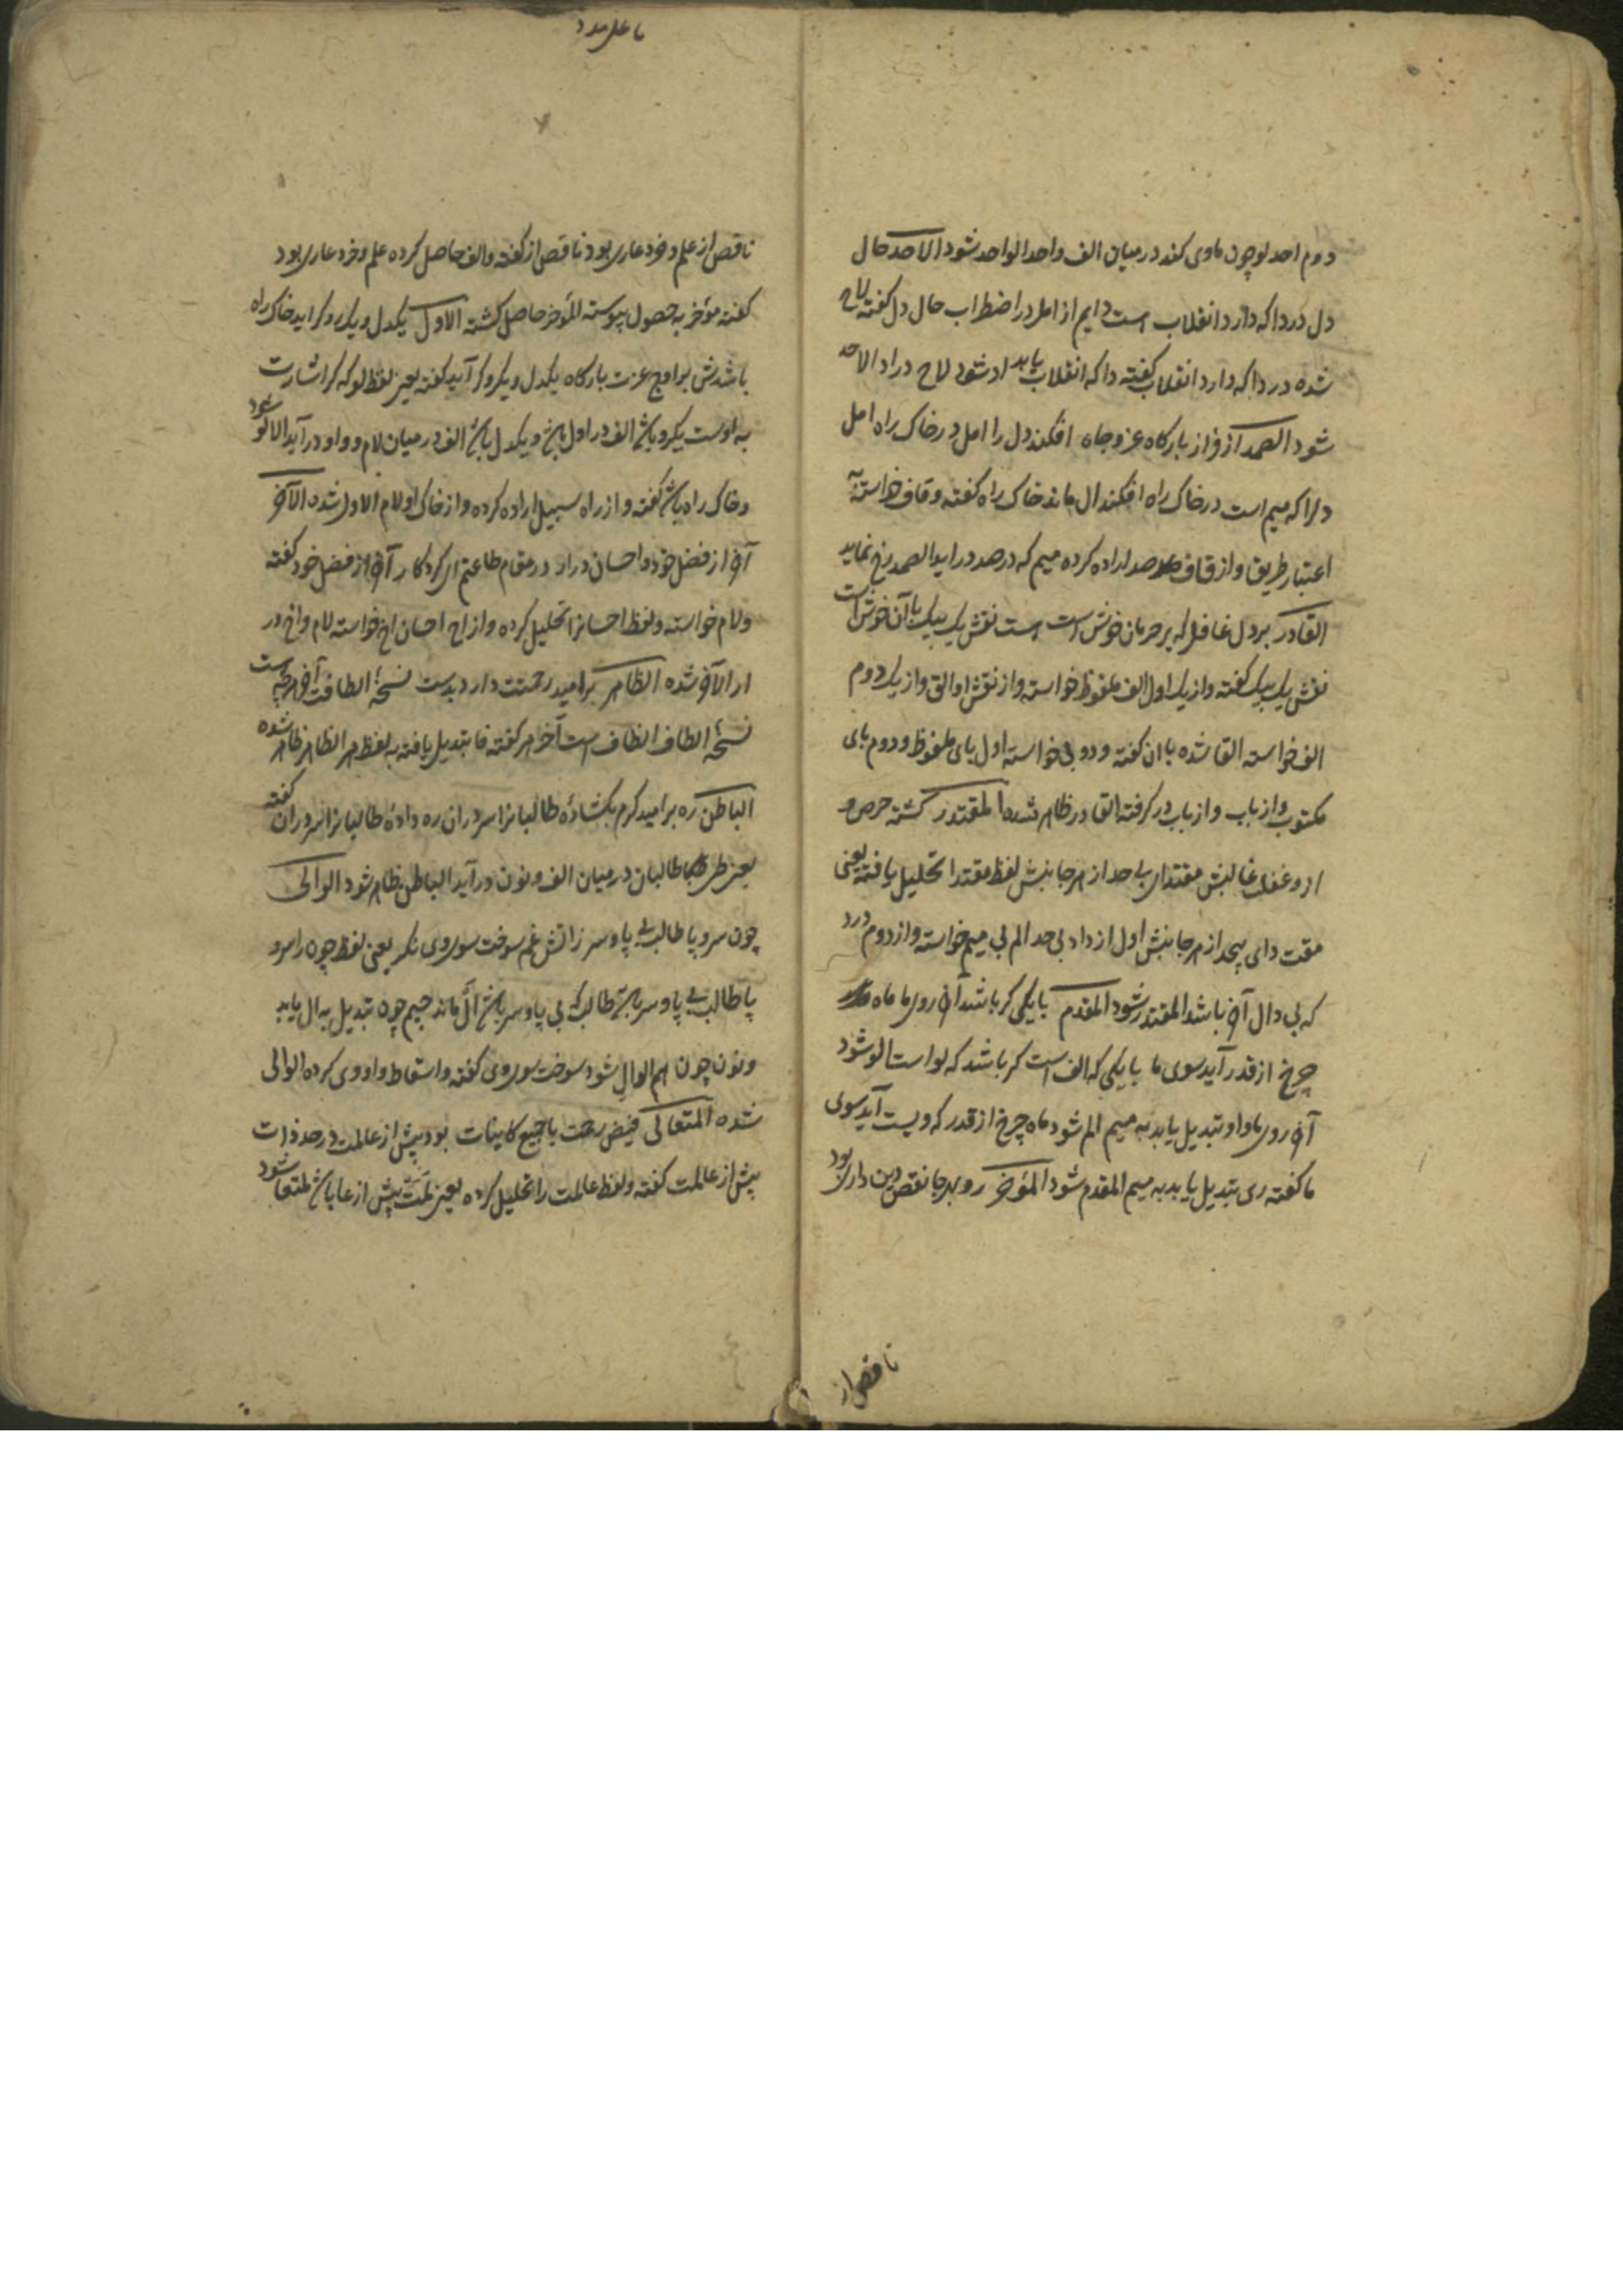 دوم احد لو چون ماوی کند در میان الف واحد الواحد شود الاحد حال
دل دردا که دارد انقلاب است دایم از امل در اضطراب حال دل گفته لاح
شده دردا که دارد انقلاب گفته دا که انقلاب یابد اد شود لاح در اد الاحد
شود الصمد از فراز بارکاه عز و جاه افکند دل را امل در خاک راه امل
دلرا که میم است در خاک راه افکند ال ماند خاک راه گفته و قاف خواسته
اعتبار طریق و از قاف صد اراده کرده میم که در صد در اید الصمد رخ نماید
القادر بر دل غافل که بر حرمان خوش است است نقش یک بیک با آن خوش است
نقش یک بیک گفته و از یک اول الف ملفوظ خواسته و از نقش او الق و از یک دوم
الف خواسته القا شده با ان گفته و دو بی خواسته اول بای ملفوظ و دوم بای
مکتوب و از باب و از باب در گرفته القادر ظاهر شده المقتدر گشته حرص و
از و غفلت غالبش مقتدای بیحد از هر جانبش لفظ مقتدا تحلیل یافته یعنی
مقت دای بیحد از هر جانبش اول از داد بی حد الم بی میم خواسته و از دوم درد
که بی دال آخر باشد المقتدر شود المقدم با یکی کر باشد آخر روی ما ماه
چرخ از قدر آید سوی ما با یکی که الف است کر باشد که لو است الو شود
آخر روی ما واو تبدیل یابد به میم الم شود ماه چرخ از قدر که ویست آید سوی
ما گفته ری تبدیل یابد به میم المقدم شود المؤخر رو بهر جا نقص دین داری بود
ناقص از
ناقص از علم و خرد عاری بود ناقص از گفته و الف حاصل کرده علم و خرد عاری بود
گفته مؤخر به حصول پیوسته المؤخر حاصل گشته الاول یکدل و یکرو کر اید خاک راه
باشدش بر اوج عزت بارکاه یکدل و یکرو کر آید گفته یعنی لفظ لو که کر اشارت
به اوست یکرو یاش الف در اول یاش و یکدل یاش الف در میان لام و واو در آید الاو شود
و خاک راه یاش گفته و از راه سبیل اراده کرده و از خاک او لام الاول شده الآخر
آخر از فضل خود و احسان در ار در مقام طاعتم ای کردکار آخر از فضل خود گفته
و لام خواسته و لفظ احسانرا تحلیل کرده و از اح احسان اخ خواسته لام و اخ در
ار الآخر شده الظاهر بر امید رحمتت دارد بدست نسخهٔ الطافت آخر هر که هست
نسخهٔ الطاف الظاف است آخر هر گفته فا تبدیل یافته به لفظ هر الظاهر ظاهر شده
الباطن ره بر امید کرم بگشادهٔ طالبانرا سر در ان ره دادهٔ طالبانرا سر در ان گفته
یعنی طی طالبان در میان الف و نون در آید الباطن ظاهر شود الوالی
چون سر و پا طالب بی پا و سر ز اتش غم سوخت سوروی نگر یعنی لفظ چون را سر و
پا طالب بی پا و سر یاش طالب که بی پا و سر یاش ال ماند جیم چون تبدیل به ال یابد
و نون چون هم الوال شود سوخت سوروی گفته و اسقاط واو وی کرده الوالی
شده المتعالی فیض رحمت با جمیع کاینات بود پیش از عالمت در حد ذات
پیش از عالمت گفته و لفظ عالمت را تحلیل کرده یعنی لمت پیش از عا یاش لمتعا شود